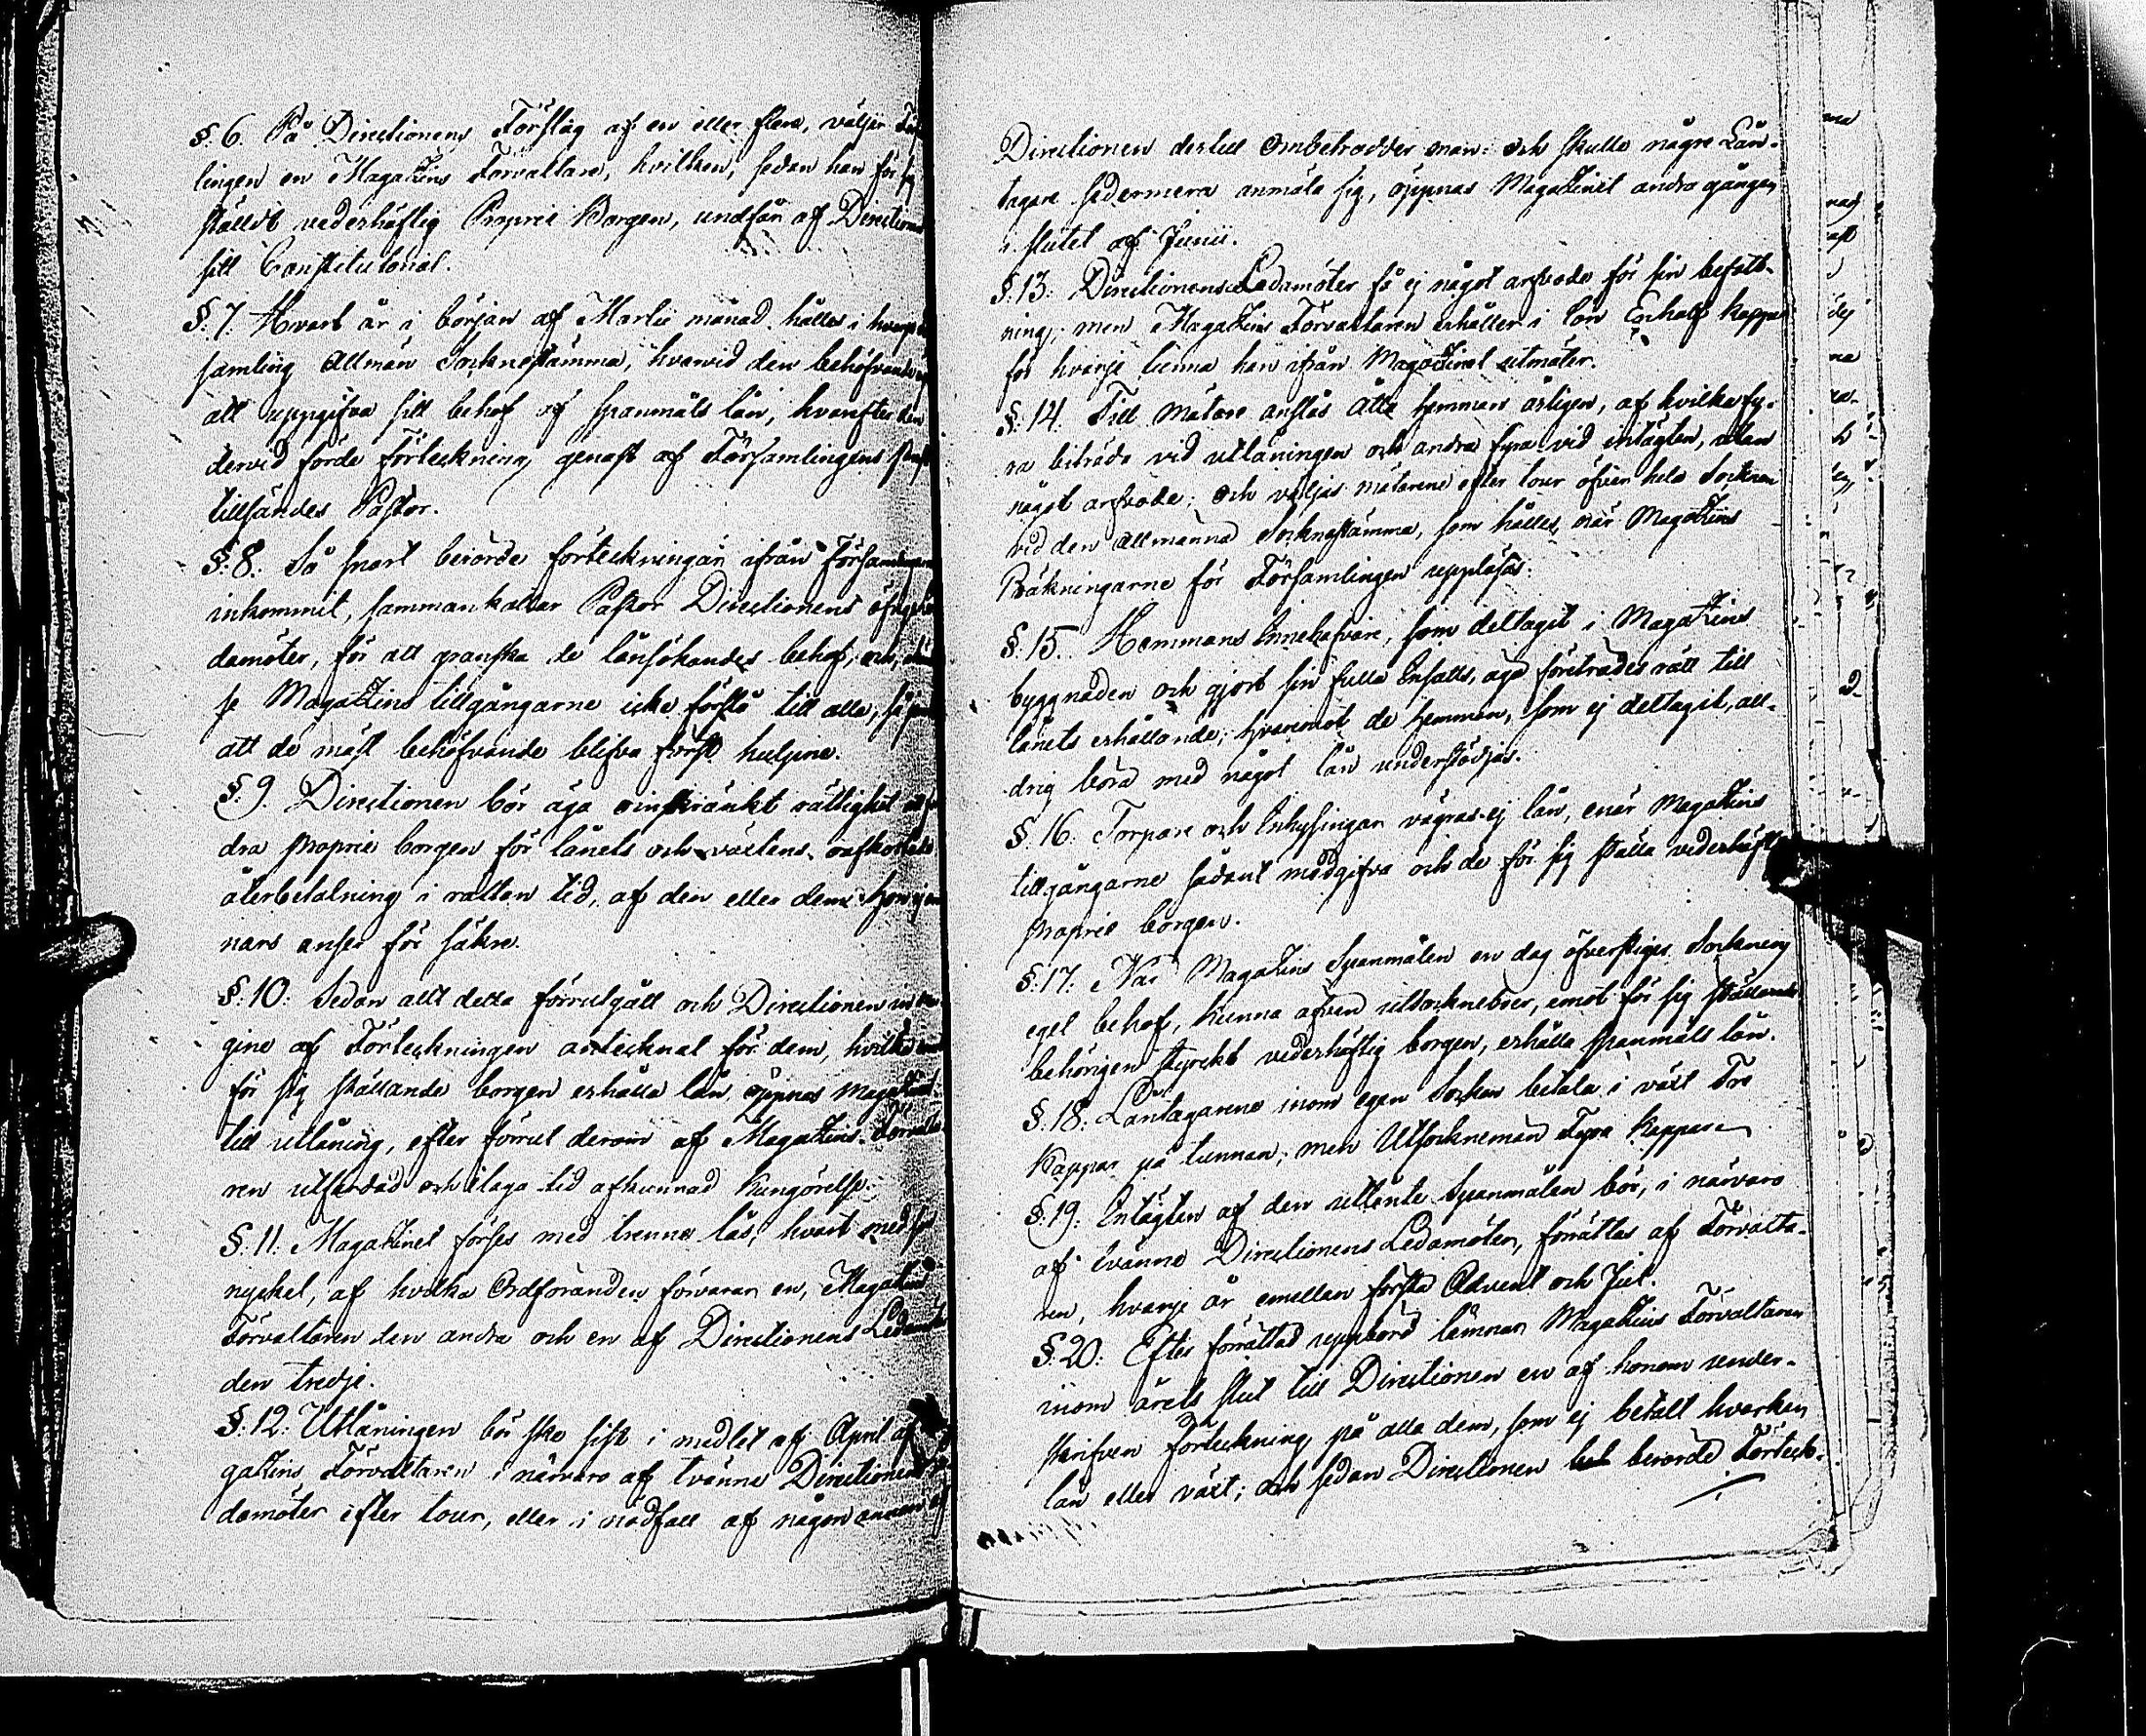 §. 6. På Directionens Förslag af en eller flera, väljer För
lingen en Magazins Förvaltare, hvilken, sedan han för sig
ställdt vederhäftig Proprie Borgen, undfår af Directionen
sitt Constitutorial.
§. 7. Hvart år i början af Martii månad hålles i hvarje
samling Allmän Socknestämma, hvarvid den behöfvande
att uppgifva sitt behof af spanmåls lån, hvarefter den
dervid förde Förteckning genast af Församlingens
tillsändes Pastor.
§. 8. Så snart berörde förteckningar ifrån Församlingarne
inkommit, sammankallar Pastor Directionens öfrige
damöter, för att granska de lånsökandes behof, och,
se Magazins tillgångarne icke förslå till alla,
att de mäst behöfvande blifva först hulpne.
§. 9. Directionen bör äga oinskränkt rättighet
dra proprie borgen för lånets och växtens oafkortade
återbetalning i rattan tid, af den eller dem hon ej
nars anser för säkre.
§. 10. Sedan allt detta förrutgått och Directionen
gine af Förteckningen antecknat för dem, hvilka
för sig ställande borgen erhålla lån, öppnas Magazinet
till utlåning, efter förrut derom af Magazins Förvalta
ren utfärdad och ilaga tid afkunnad Kungörelse.
§. 11. Magazinet förses med trenne lås, hvart med
nyckel, af hvilka Ordföranden förvarar en, Magazins
Förvaltaren den andra och en af Directionens Ledamöter
den tredje.
§. 12. Utlåningen bör ske sist i medlet af April af
gazins Förvaltaren i närvaro af tvänne Directionens
damöter efter tour, eller i nödfall af någon annan af
Directionen dertill ombetrodder man: och skulle någre Lån-
tagare sedermera anmäla sig, öppnas Magazinet andra gången
i slutet af Junii.
§. 13. Directionens Ledamöter få ej något arfvode för sin befatt-
ning; men Magazins Förvaltaren erhåller i lön En half kappe
för hvarje tunna han ifrån Magazinet utmäter.
§. 14. Till mätare anslås Åtta hemman årligen, af hvilka fy-
ra biträda vid utlåningen och andra fyra vid intägten, utan
något arfvode; och väljas mätarene efter tour öfver hela Socknen
vid den allmänna Sockenstämma, som hålles, när Magazins
Räkningarne för Församlingen uppläsas.
§. 15. Hemmans Innehafvare, som deltagit i Magazins
byggnaden och gjort sin fulla Insatts, äga företrädes rätt till
lånets erhållande; hvaremot de hemman, som ej deltagit, all-
drig böra med något lån understödjas.
§. 16. Torpare och Inhysingar vägras ej lån, enär Magazins
tillgångarne sådant medgifva och de för sig ställa vederhäft
proprie borgen.
§. 17. När Magazins Spanmålen en dag öfverstiger Socknens
eget behof, kunna äfven utsocknebor, emot för sig ställande
behörigen styrkt vederhäftig borgen, erhålla spanmåls lån.
§. 18. Låntagarene inom egen Socken betala i växt Tre
Kappar på tunnan; men Utsockneman Fyra Kappar.
§. 19. Intägten af den utlånte Spanmålen bör, i närvaro
af tvänne Directionens Ledamöter, förrättas af Förvalta-
ren, hvarje år emellan första Advent och Jul.
§. 20. Efter förrättad uppbörd lämnar Magazins Förvaltaren
inom årets slut till Directionen en af honom under-
skrifven Förteckning på alla dem, som ej betalt hvarken
lån eller växt; och sedan Directionen berörde Förteck-